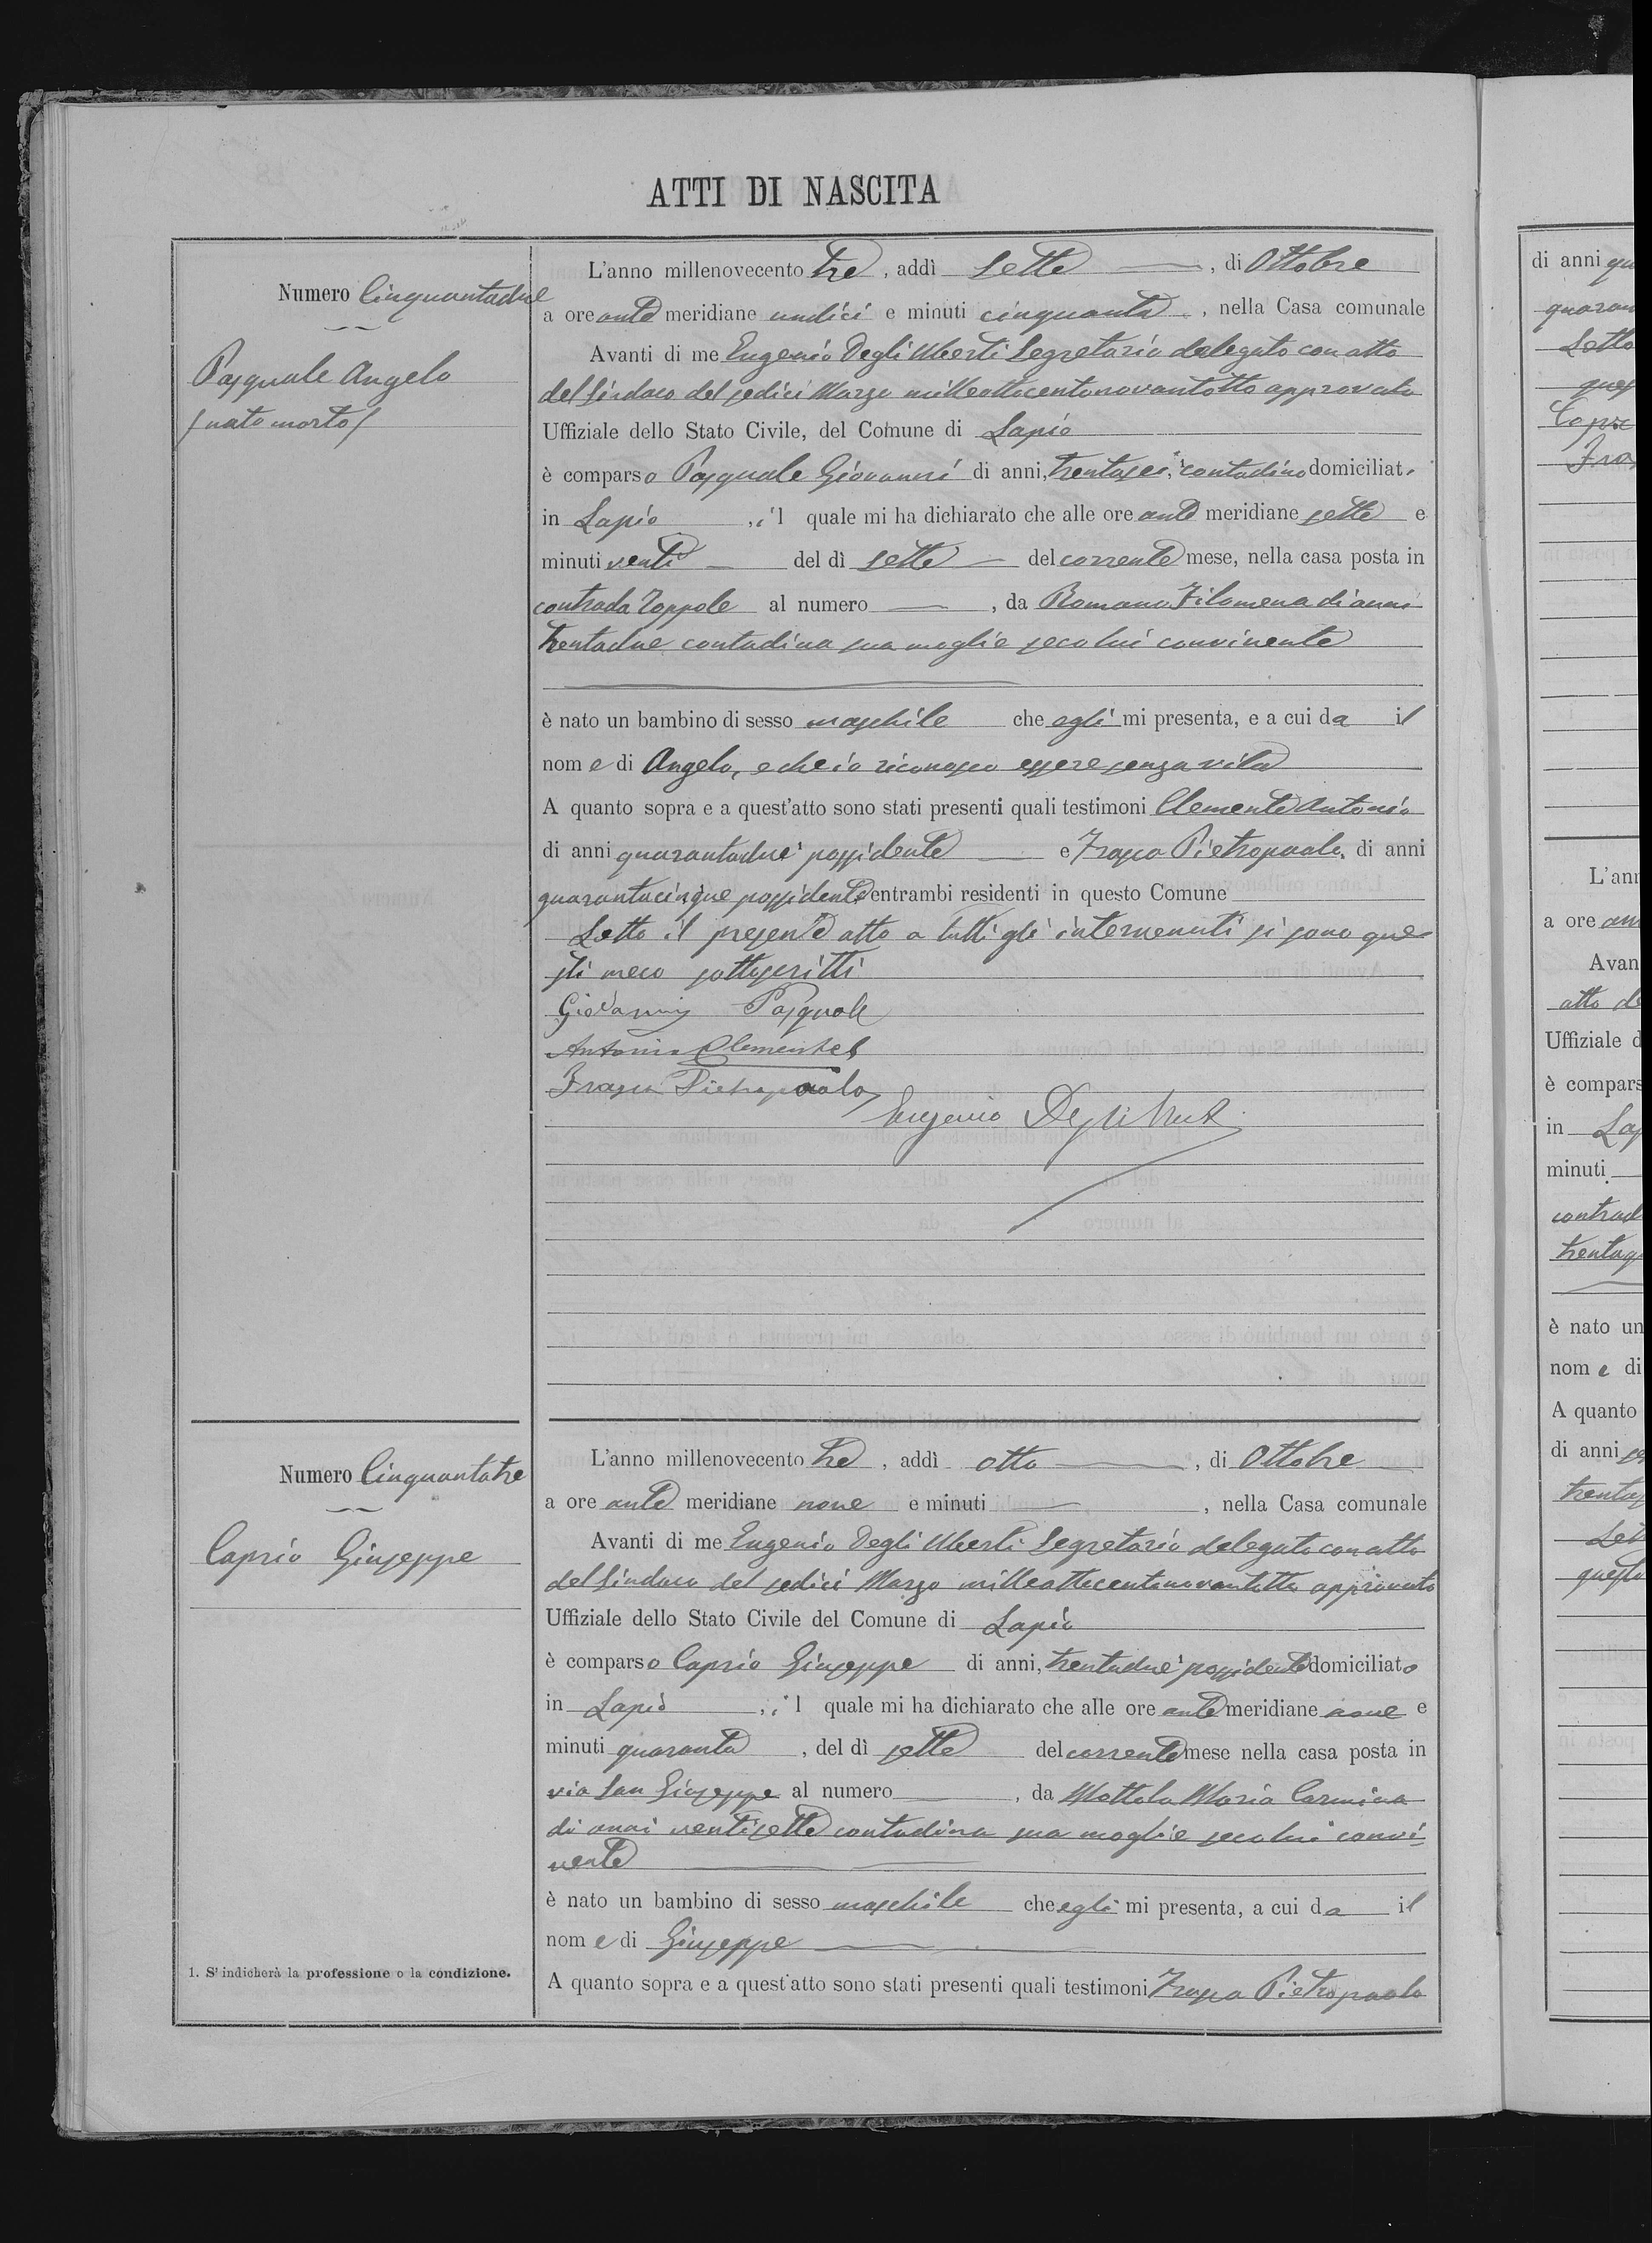 ATTI DI NASCITA
Numero Cinquantadue
Pasquale Angelo
(nato morto)
L'anno millenovecento tre, addì Sette, di Ottobre
a ore ante meridiane undici e minuti cinquanta, nella Casa comunale
Avanti di me Eugenio Degli Uberti Segretario delegato con atto
del Sindaco del sedici Marzo milleottocentonovantotto approvato
Uffiziale dello Stato Civile, del Comune di Lapio
è comparso Pasquale Giovanni di anni, trentasei, contadino domiciliato
in Lapio, il quale mi ha dichiarato che alle ore ante meridiane sette e
minuti venti del dì sette del corrente mese, nella casa posta in
contrada Toppole al numero, da Romano Filomena di anni
trentadue contadina sua moglie seco lui convivente
è nato un bambino di sesso maschile che egli mi presenta, e a cui da il
nome di Angelo, e che io riconosco essere senza vita
A quanto sopra e a quest'atto sono stati presenti quali testimoni Clemente Antonio
di anni quarantadue possidente e Frasca Pietropaolo, di anni
quarantacinque possidente entrambi residenti in questo Comune
Letto il presente atto a tutti gli intervenuti si sono que
sti meco sottoscritti
Giovanni Pasquale
Antonio Clemente
Frasca Pietropaolo
Eugenio Degli Uberti
Numero Cinquantatre
Caprio Giuseppe
L'anno millenovecento tre, addì otto, di Ottobre
a ore ante meridiane nove e minuti, nella Casa comunale
Avanti di me Eugenio Degli Uberti Segretario delegato con atto
del Sindaco del sedici Marzo milleottocentonovantotto approvato
Uffiziale dello Stato Civile del Comune di Lapio
è comparso Caprio Giuseppe di anni, trentadue possidente domiciliato
in Lapio, il quale mi ha dichiarato che alle ore ante meridiane nove e
minuti quaranta, del dì sette del corrente mese nella casa posta in
via San Giuseppe al numero, da Mottola Maria Carmina
di anni ventisette contadina sua moglie seco lui convi-
vente
è nato un bambino di sesso maschile che egli mi presenta, a cui da il
nome di Giuseppe
A quanto sopra e a quest'atto sono stati presenti quali testimoni Frasca Pietropaolo
1. S'indicherà la professione o la condizione.